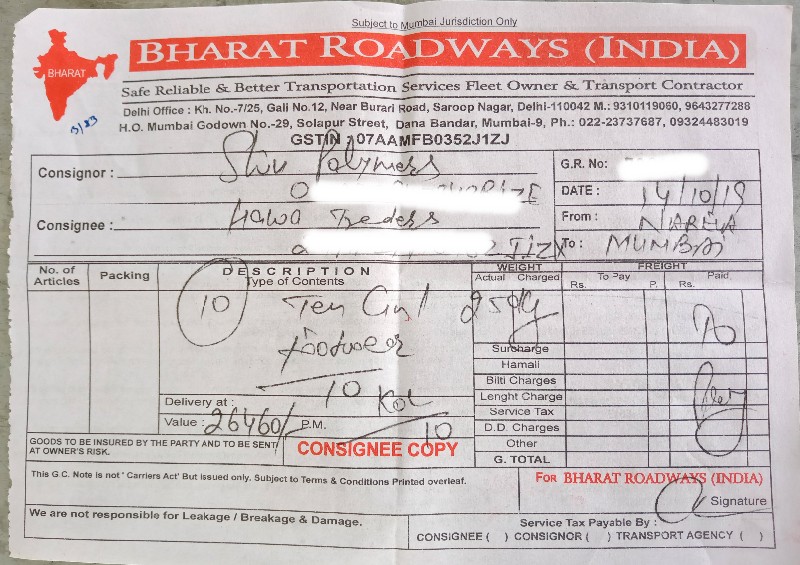 Subject to Mumbai Jurisdiction Only
BHARAT
BHARAT ROADWAYS (INDIA)
Safe Reliable & Better Transportation Services Fleet Owner & Transport Contractor
Delhi Office : Kh. No.-7/25, Gali No.12, Near Burari Road, Saroop Nagar, Delhi-110042 M.: 9310119060, 9643277288
H.O. Mumbai Godown No.-29, Solapur Street, Dana Bandar, Mumbai-9, Ph.: 022-23737687, 09324483019
GSTIN : 07AAMFB0352J1ZJ
Consignor : Shiv Polymers
G.R. No:
DATE : 14/10/19
Consignee : Hawa Treders
From : NARELA
To : MUMBAI
No. of Articles Packing DESCRIPTION Type of Contents WEIGHT Actual Charged FREIGHT To Pay Rs. P. Paid. Rs.
10 Ten
footwear
10
Surcharge
Hamali
Bilti Charges
Delivery at :
Lenght Charge
Value : 26460/ P.M. 10
Service Tax
D.D. Charges
GOODS TO BE INSURED BY THE PARTY AND TO BE SENT
AT OWNER'S RISK.
CONSIGNEE COPY
Other
G. TOTAL
This G.C. Note is not ' Carriers Act' But issued only. Subject to Terms & Conditions Printed overleaf.
FOR BHARAT ROADWAYS (INDIA)
Signature
We are not responsible for Leakage / Breakage & Damage.
Service Tax Payable By :
CONSIGNEE ( ) CONSIGNOR ( ) TRANSPORT AGENCY ( )